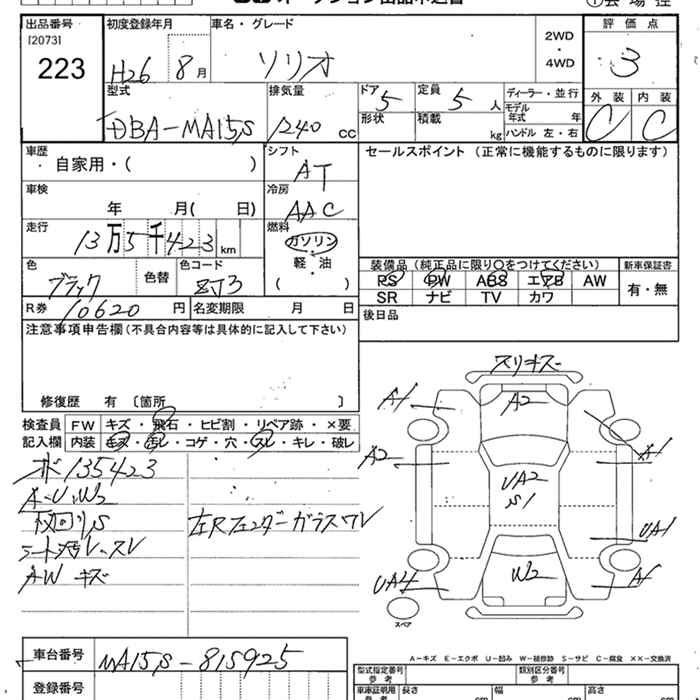 出品番号 初度登録年月 車名・グレード 2WD・4WD 評価点
[2073]
223
H26 8月 ソリオ 3
型式 排気量 ドア 定員 ディーラー・並行 外装 内装
DBA-MA15S 1240 cc 5 5人 モデル年式 年 C C
形状 積載 kg ハンドル 左・右
車歴 シフト セールスポイント (正常に機能するものに限ります)
自家用・( ) AT
車検 冷房
年 月( 日) AAC
走行 燃料
13万5千423km ガソリン・軽・油
( )
色 色替 色コード 装備品 (純正品に限り○をつけてください) 新車保証書
ブラック ZJ3 PS PW ABS エアB AW 有・無
SR ナビ TV カワ
R券 10620円 名変期限 月 日 後日品
注意事項申告欄(不具合内容等は具体的に記入して下さい)
修復歴 有 〔箇所 〕
検査員記入欄 FW キズ・飛石・ヒビ割・リペア跡・×要
内装 キズ・汚レ・コゲ・穴・スレ・キレ・破レ
135423
A・U・W2
左Rフェンダーガラス
AW キズ
スリキズ
A1 A2
A2 A1
UA2
S1
UA1
UA4 W2 A1
スペア
A-キズ E-エクボ U-凹み W-補修跡 S-サビ C-腐食 ××-交換済
車台番号 MA15S-815925
登録番号
型式指定番号 参考 類別区分番号 参考
車庫証明用 参考 長さ cm 幅 cm 高さ cm